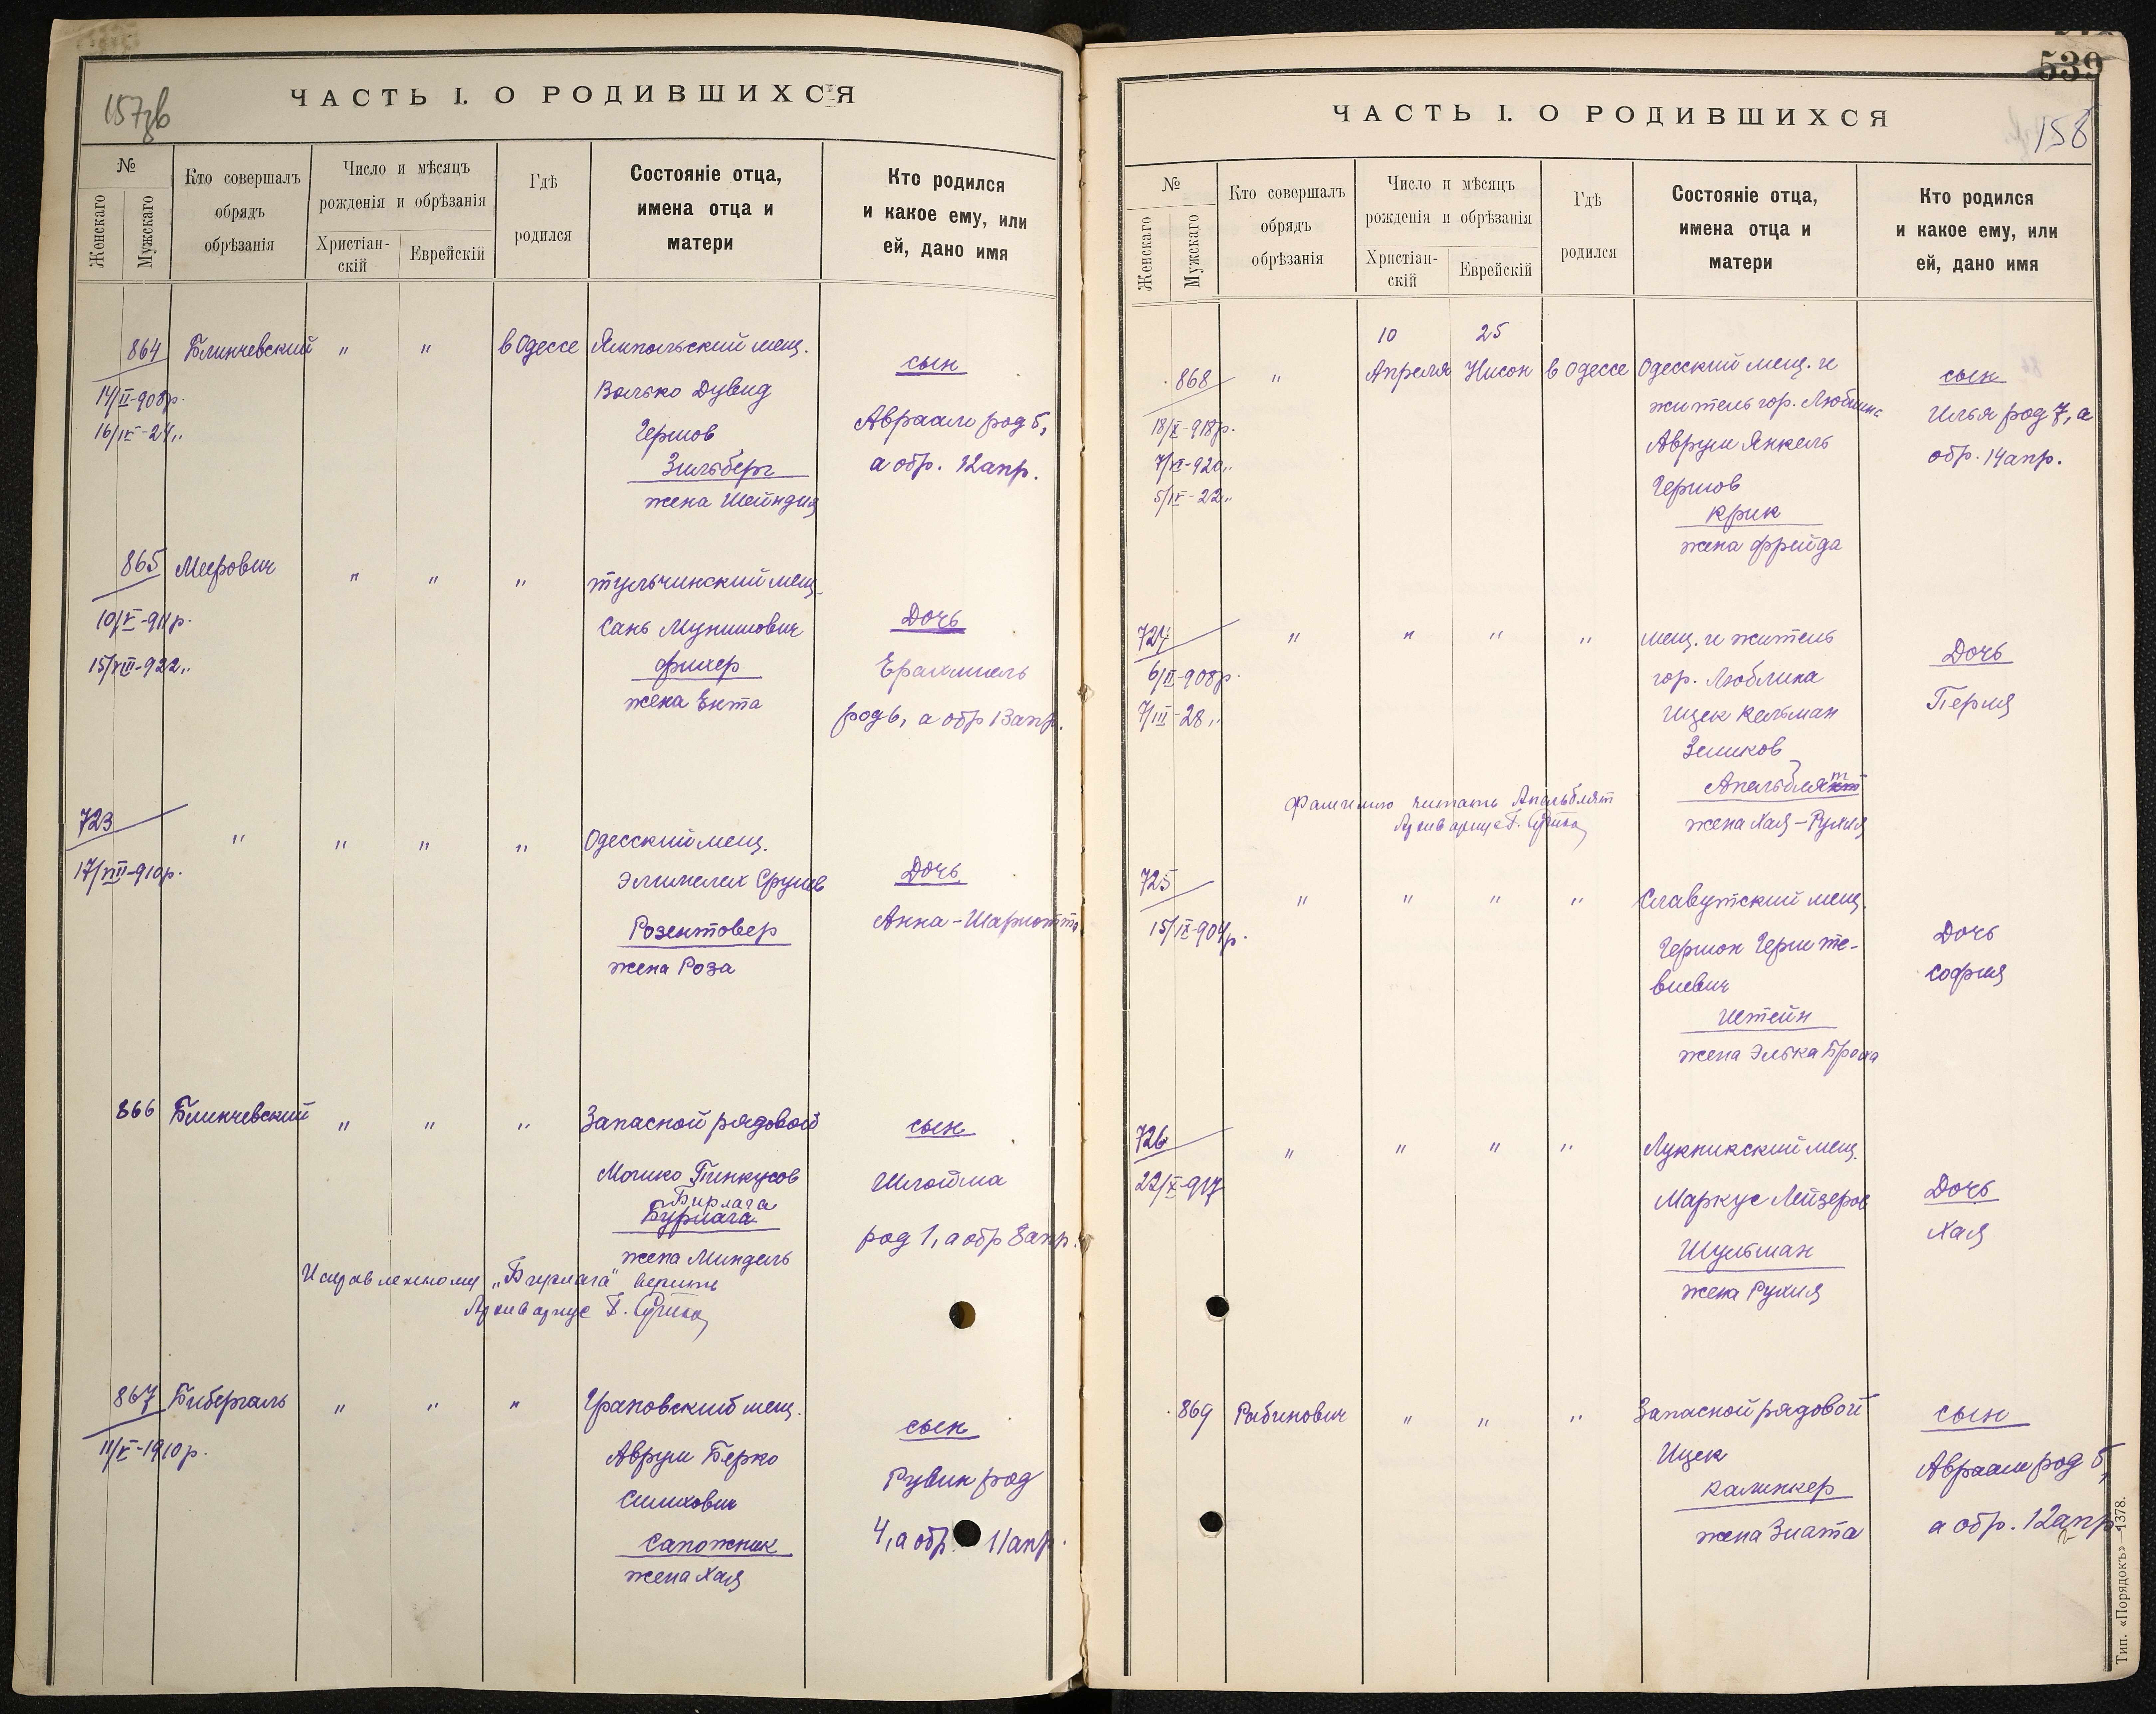 ЧАСТЬ I. О РОДИВШИХСЯ
157зв
№
Женскаго
Мужскаго
Кто совершалъ
обрядъ
обрѣзанія
Число и мѣсяцъ
рожденія и обрѣзанія
Христіан-
скій
Еврейскій
Гдѣ
родился
Состояніе отца,
имена отца и
матери
Кто родился
и какое ему, или
ей, дано имя
864 Блинчевский " " в Одессе Ямпольский мещ.
14/II-908р.
16/IX-24"
Волько Дувид
Гершов
Зильберг
жена Шейндля
сын
Авраам род 5,
а обр. 12апр.
865 Меерович " " " тульчинский мещ.
10/V-911р.
15/XII-922"
Сань Мунишович
фихер
жена Ента
Дочь
Ерахмиель
род 6, а обр 13апр.
723 " " " " Одесский мещ.
17/VIII-910р.
Элимелех Срулев
Розентовер
жена Роза
Дочь
Анна-Шарлотта
866 Блинчевский " " " Запасной рядовой
Мошко Пинкусов
Бирлага
Бурлага
жена Миндель
сын
Шлойма
род 1, а обр 8апр.
Исправленному „Бирлага" верить
Архивариус
867 Бибергаль " " " Грановский мещ.
11/V-1910р.
Аврум Берко
Симхович
Сапожник
жена Хая
сын
Рувин род
4, а обр. 11апр.
539
ЧАСТЬ I. О РОДИВШИХСЯ
158
№
Женскаго
Мужскаго
Кто совершалъ
обрядъ
обрѣзанія
Число и мѣсяцъ
рожденія и обрѣзанія
Христіан-
скій
Еврейскій
Гдѣ
родился
Состояніе отца,
имена отца и
матери
Кто родился
и какое ему, или
ей, дано имя
10 25
868 " Апреля Нисон в Одессе Одесский мещ. и
18/X-918р.
7/XI-920"
5/IX-22"
житель гор. Люблина
Аврум Янкель
Гершов
Крик
жена фрейда
сын
Илья род 7, а
обр. 14апр.
724 " " " " мещ. и житель
6/II-908р.
7/III-28"
гор. Люблина
Ицек Кельман
Зеликов
Апельблат
жена Хая-Рухля
Дочь
Перля
фамилию читать Апельблят
Архивариус
725 " " " " Славутский мещ.
15/IX-904р.
Гершон Герш те-
виевич
Штейн
жена ЭлькаБроха
Дочь
София
726 " " " " Лукникский мещ.
22/X-917
Маркус Лейзеров
Шульман
жена Рухля
Дочь
Хая
869 Рабинович " " " Запасной рядовой
Ицек
Калинкер
жена Злата
сын
Авраам род 5,
а обр. 12апр
Тип. «Порядокъ»—1378.